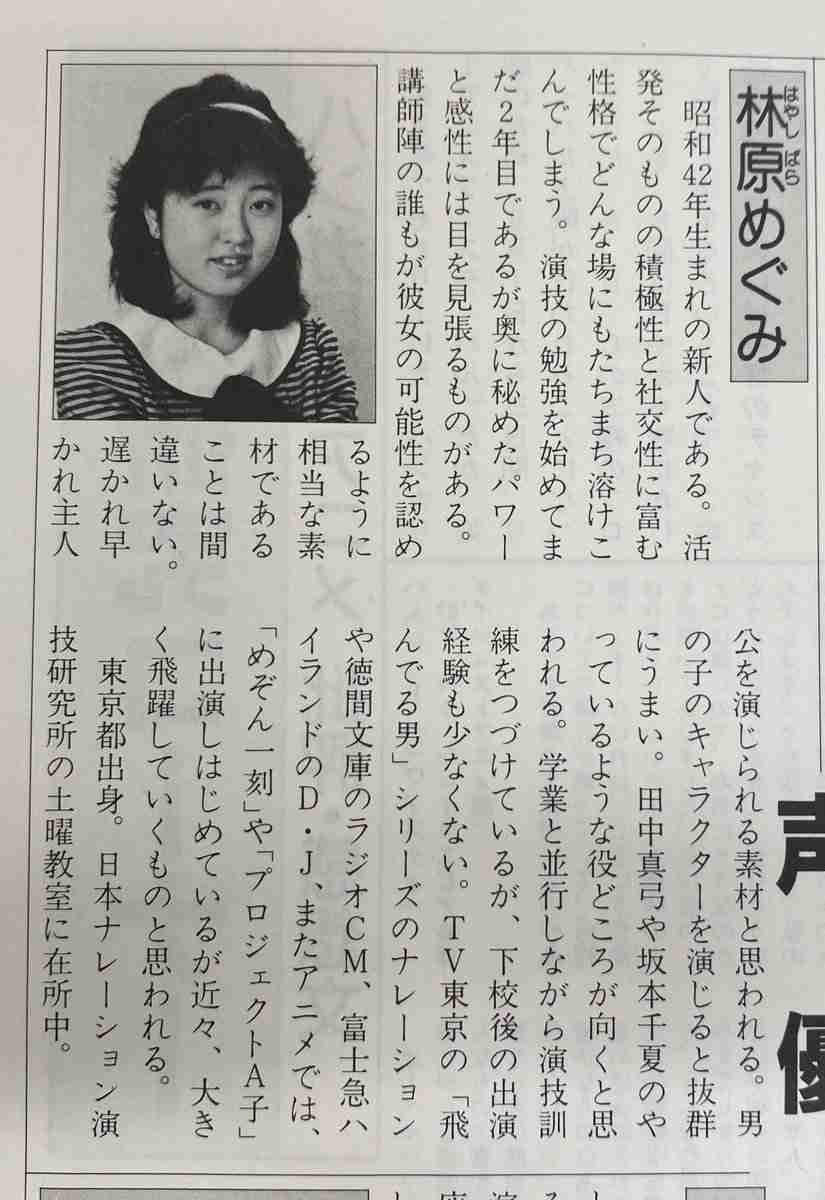 林原めぐみ
はやし ばら
昭和42年生まれの新人である。活
発そのものの積極性と社交性に富む
性格でどんな場にもたちまち溶けこ
んでしまう。演技の勉強を始めてま
だ2年目であるが奥に秘めたパワー
と感性には目を見張るものがある。
講師陣の誰もが彼女の可能性を認め
るように
相当な素
材である
ことは間
違いない。
遅かれ早
かれ主人
公を演じられる素材と思われる。男
の子のキャラクターを演じると抜群
にうまい。田中真弓や坂本千夏のや
っているような役どころが向くと思
われる。学業と並行しながら演技訓
練をつづけているが、下校後の出演
経験も少なくない。TV東京の「飛
んでる男」シリーズのナレーション
や徳間文庫のラジオCM、富士急ハ
イランドのD・J、またアニメでは、
「めぞん一刻」や「プロジェクトA子」
に出演しはじめているが近々、大き
く飛躍していくものと思われる。
東京都出身。日本ナレーション演
技研究所の土曜教室に在所中。
声優